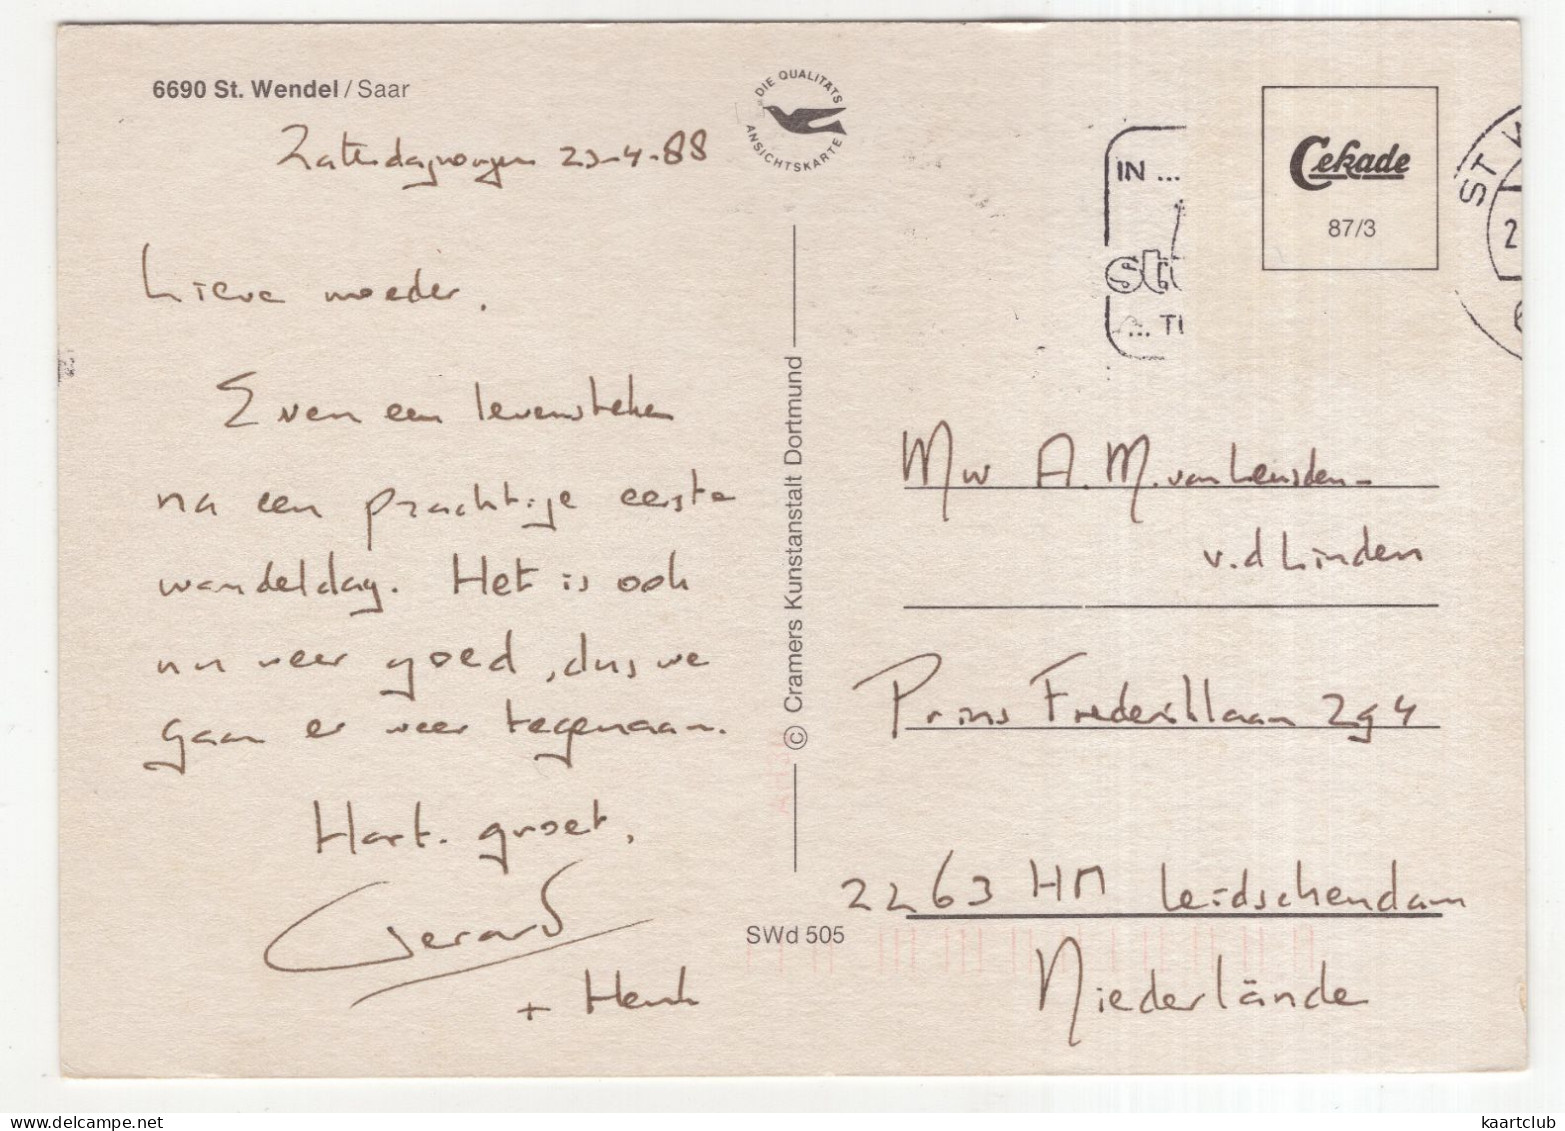 6690 St. Wendel / Saar
Zaterdagmorgen 23-4-88
Lieve moeder,
Even een levensteken
na een prachtige eerste
wandeldag. Het is ook
nu weer goed, dus we
gaan er weer tegenaan.
Hart. groet,
Gerard
+ Henk
DIE QUALITÄTS
ANSICHTSKARTE
© Cramers Kunstanstalt Dortmund
SWd 505
IN ...
... TI
Cekade
87/3
ST
Mw A. M. van Leusden-
v.d Linden
Prins Frederiklaan 294
2263 HM Leidschendam
Niederlände
kaartclub